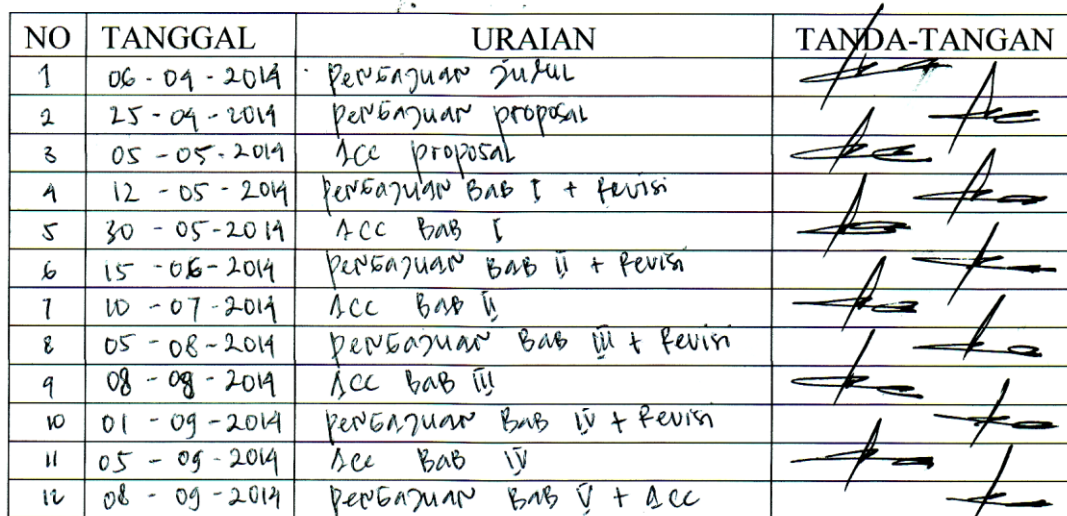 NO TANGGAL URAIAN TANDA-TANGAN
1 06-04-2014 Pengajuan Judul
2 25-04-2014 Pengajuan proposal
3 05-05-2014 Acc proposal
4 12-05-2014 Pengajuan BAB I + Revisi
5 30-05-2014 Acc BAB I
6 15-06-2014 Pengajuan BAB II + Revisi
7 10-07-2014 Acc BAB II
8 05-08-2014 Pengajuan BAB III + Revisi
9 08-08-2014 Acc BAB III
10 01-09-2014 Pengajuan BAB IV + Revisi
11 05-09-2014 Acc BAB IV
12 08-09-2014 Pengajuan BAB V + Acc